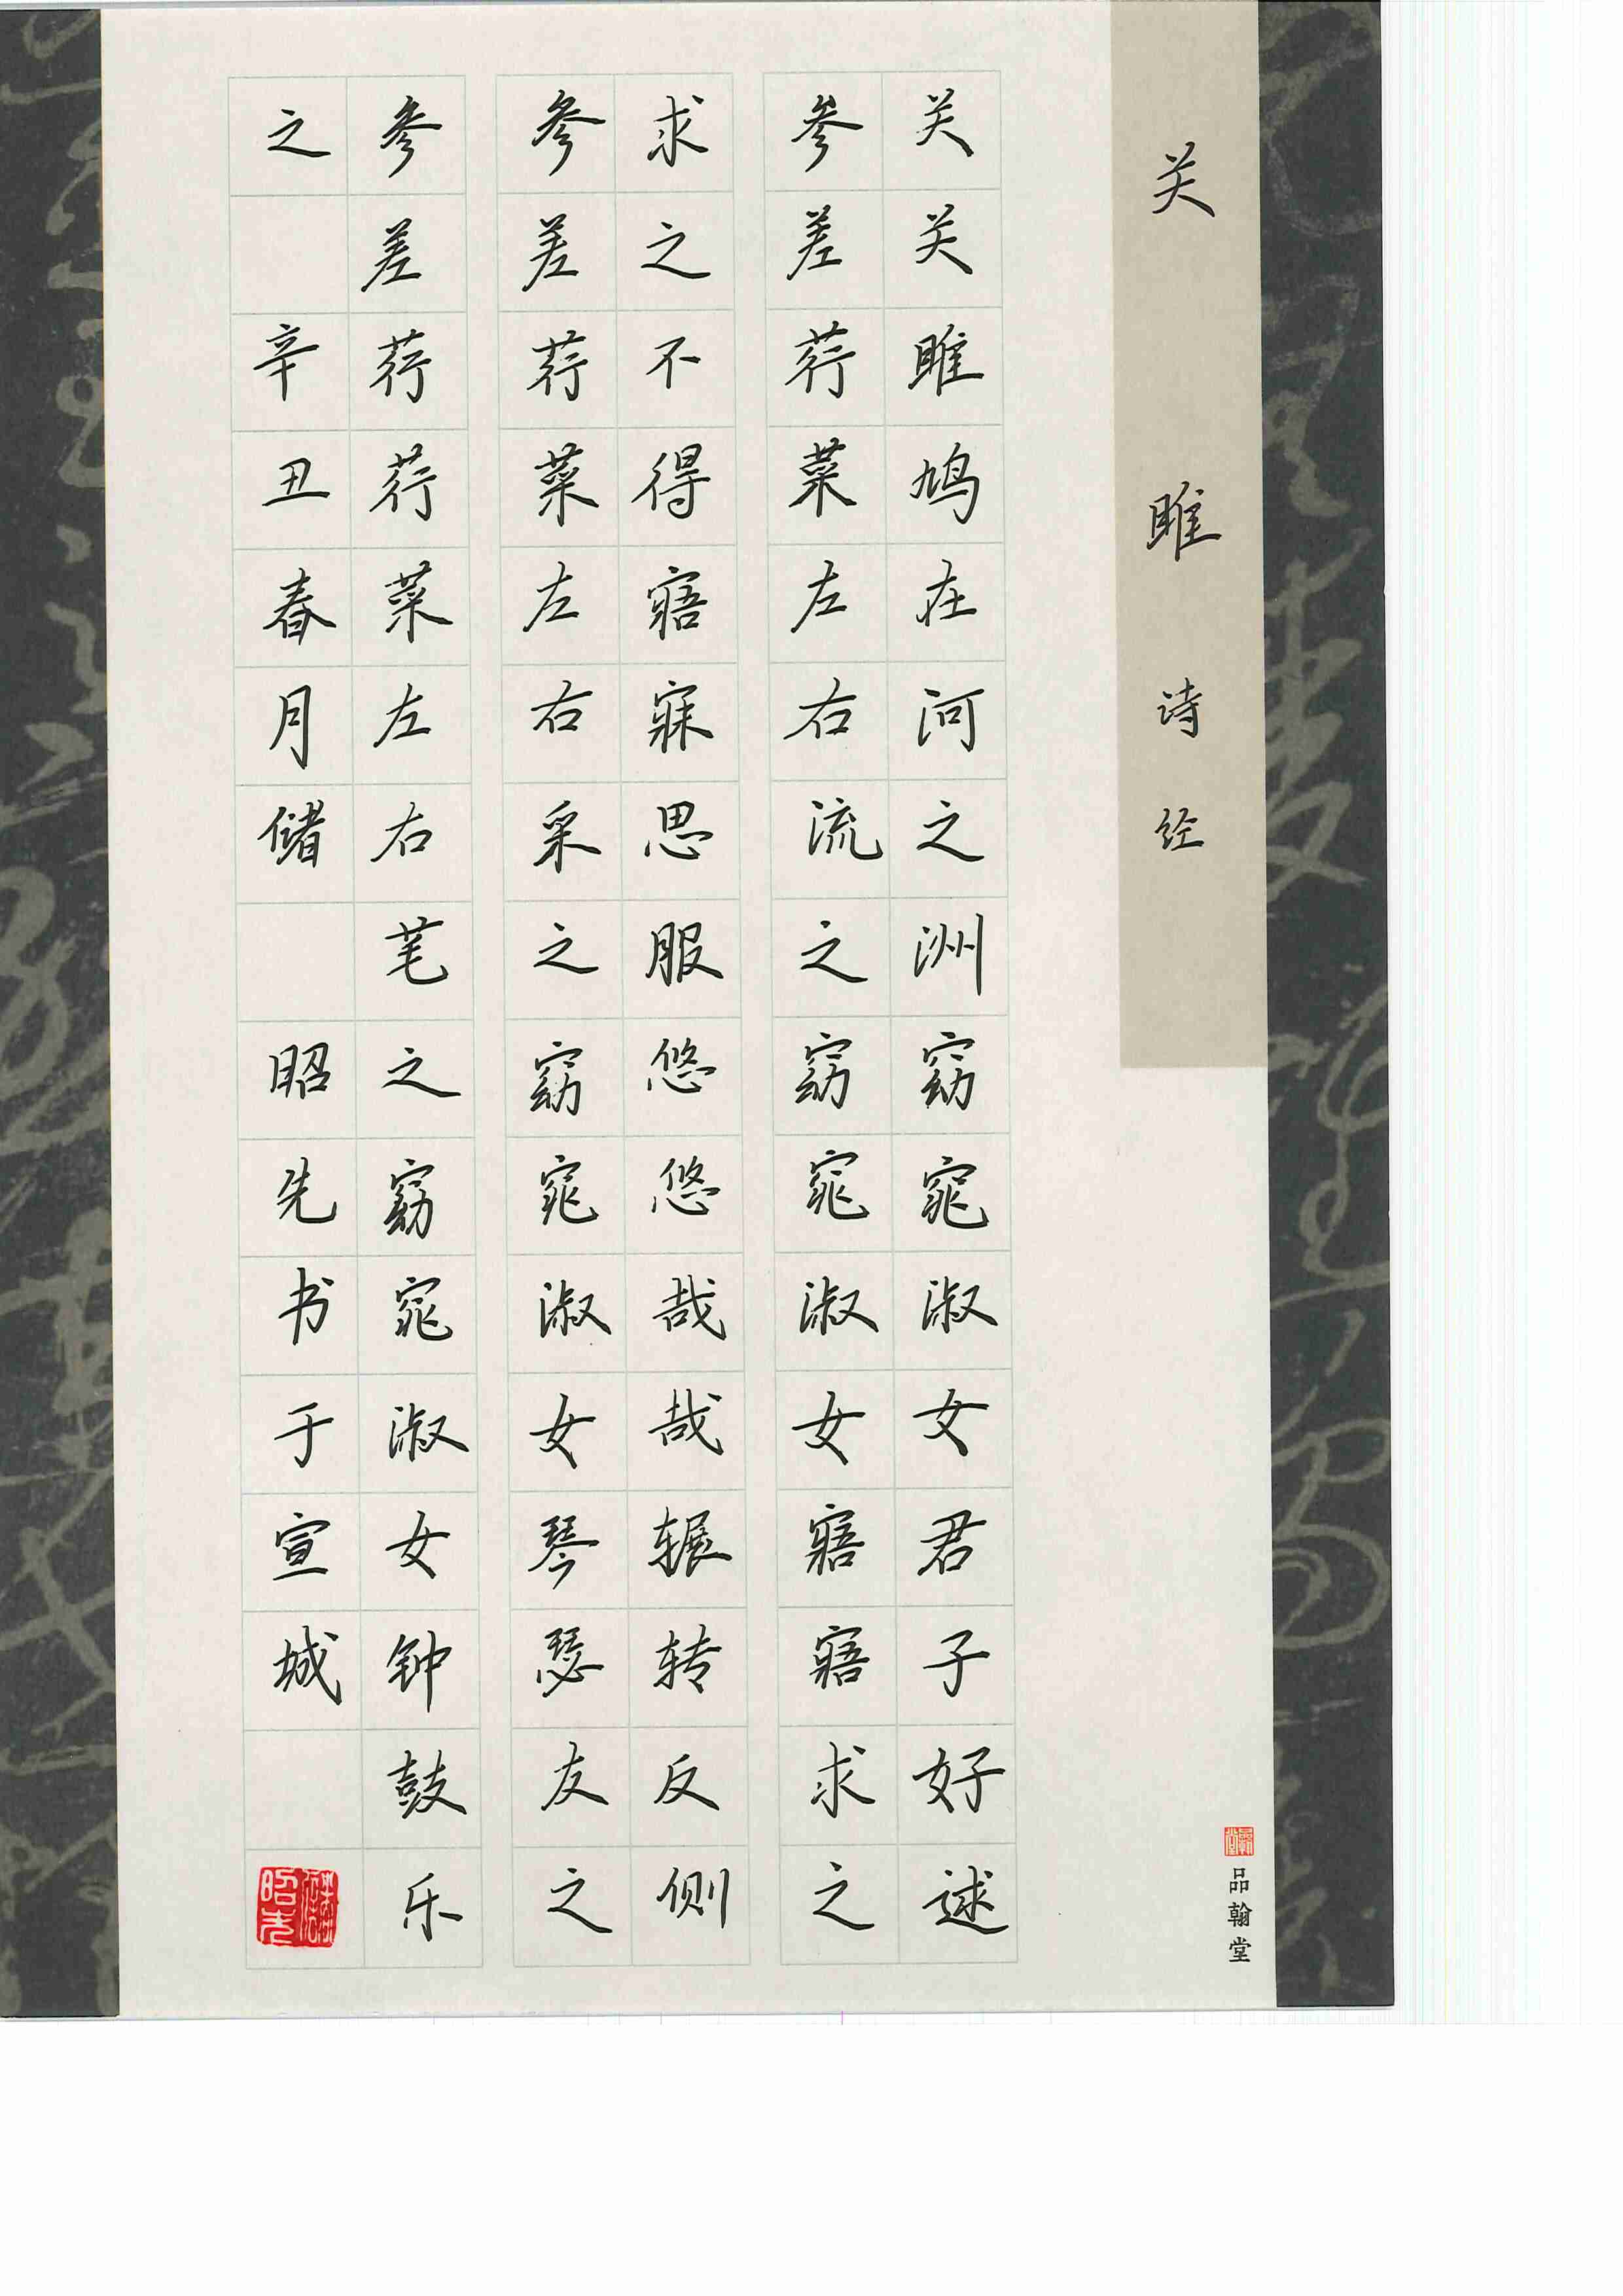 关雎 诗经
关关雎鸠在河之洲窈窕淑女君子好逑
参差荇菜左右流之窈窕淑女寤寤求之
求之不得寤寐思服悠悠哉哉辗转反侧
参差荇菜左右采之窈窕淑女琴瑟友之
参差荇荇菜左右芼之窈窕淑女钟鼓乐
之 辛丑春月储 昭先书于宣城
储昭先
品翰堂